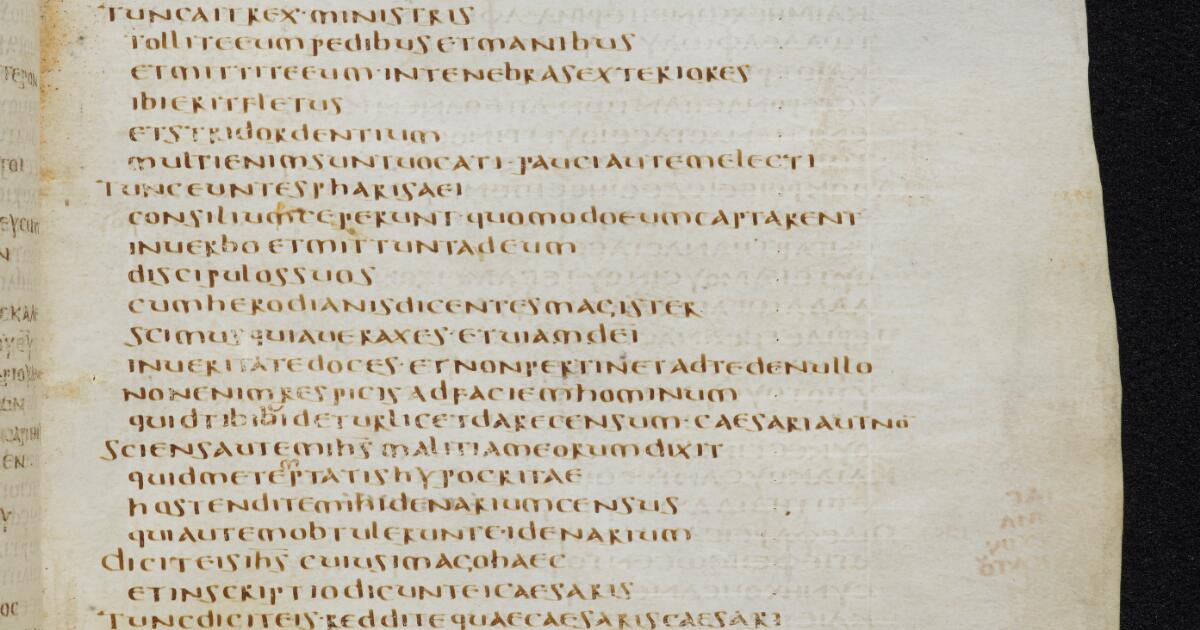 TUNCAITREX·MINISTRIS
TOLLITEEUMPEDIBUSETMANIBUS
ETMITTITEEUM·INTENEBRASEXTERIORES
IBIERITFLETUS
ETSTRIDORDENTIUM
MULTIENIMSUNTUOCATI·PAUCIAUTEMELECTI
TUNCEUNTESPHARISAEI
CONSILIUMCEPERUNT·QUOMODOEUMCAPTARENT
INUERBOETMITTUNTADEUM
DISCIPULOSSUOS
CUMHERODIANISDICENTESMAGISTER
SCIMUSQUIAUERAXES·ETUIAMDEI
INUERITATEDOCES·ETNONPERTINETADTEDENULLO
NONENIMRESPICISADFACIEMHOMINUM
QUIDTIBIUIDETURLICETDARECENSUM·CAESARIAUTNŌ
SCIENSAUTEMIHS̄MALITIAMEORUMDIXIT
QUIDMETEMPTATISHYPOCRITAE
HOSTENDITEMIHIDENARIUMCENSUS
QUIAUTEMOBTULERUNTEIDENARIUM
DICITEISIHS̄CUIUSIMAGOHAEC
ETINSCRIPTIODICUNTEICAESARIS
TUNCDICITEIS·REDDITEQUAECAESARISCAESARI